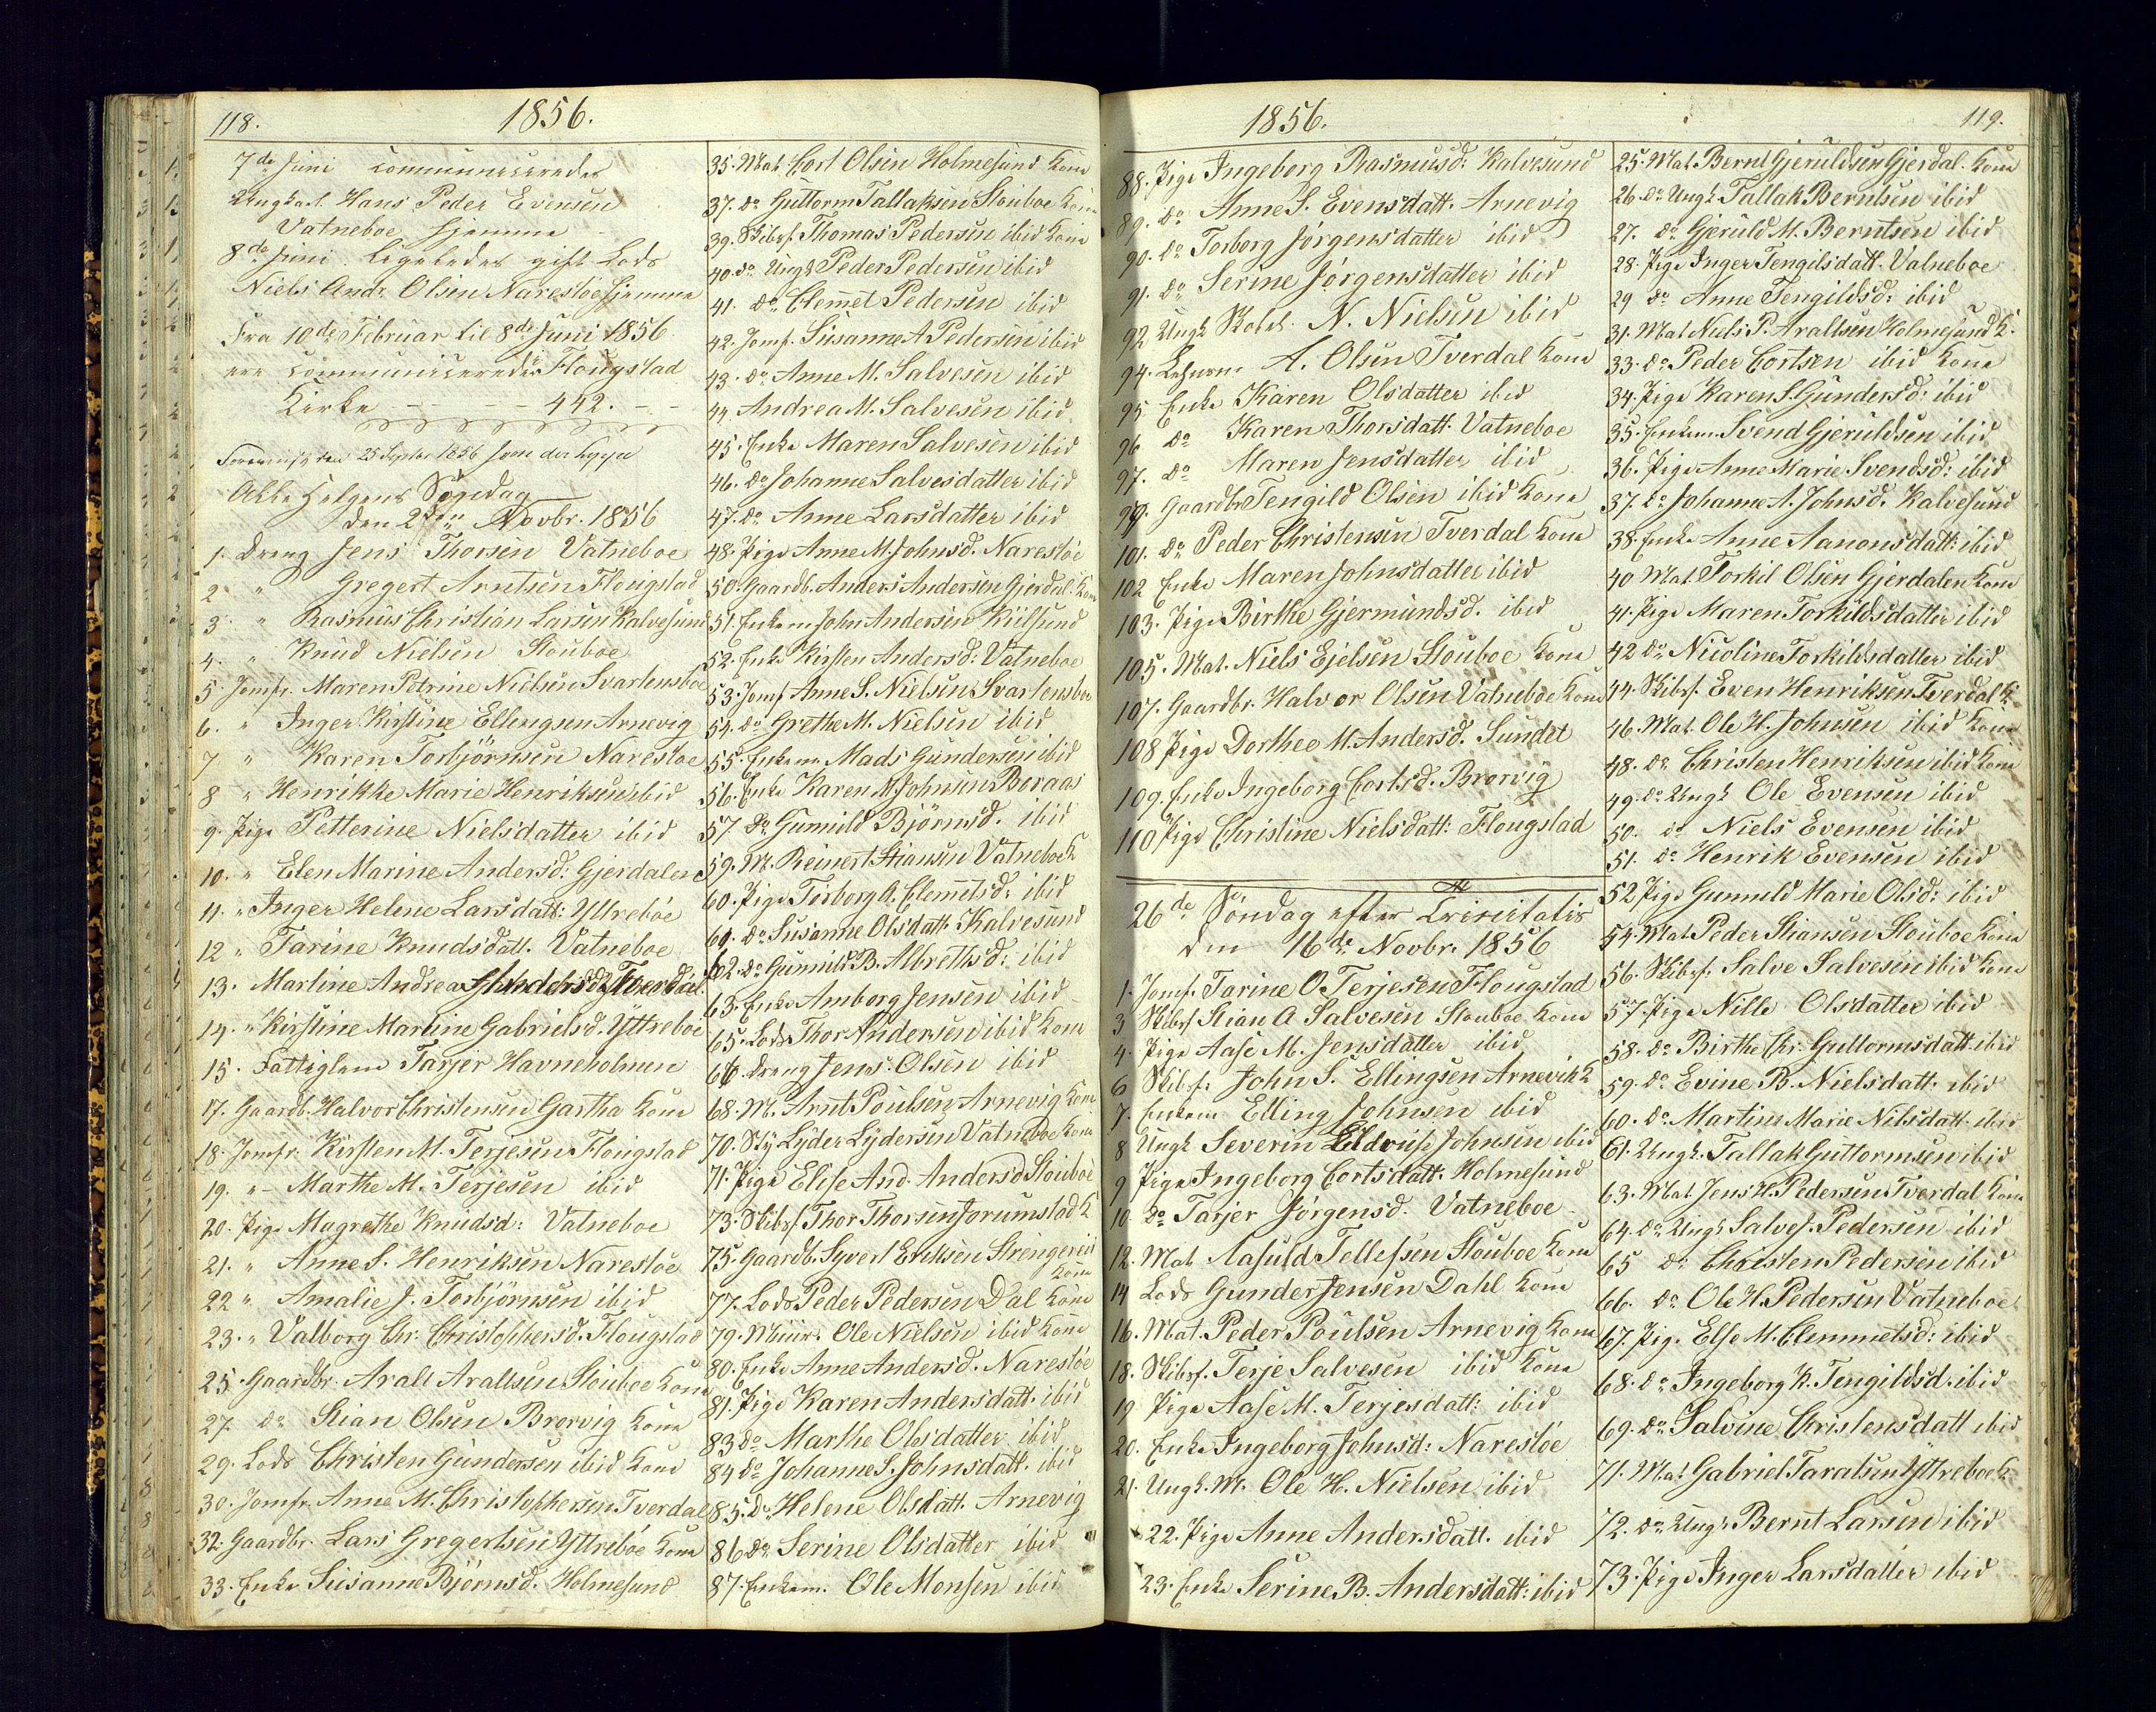 118.
1856.
7de Juni communicerede
Ungkarl Hans Peder Evensen
Vatneboe hjemme
8de Juni ligeledes gift Lods
Niels Andr. Olsen Narestøe hjemme
Fra 10de Februar til 8de Juni 1856
ere communicerede i Flougstad
Kirke - - - - 442. - -
den 25 Septbr 1856
Alle Helgens Søndag
den 2den Novbr. 1856
1. Dreng Jens Thorsen Vatneboe
2 " Gregert Arntsen Flougstad
3 " Rasmus Christian Larsen Kalvesund
4. " Knud Nielsen Stouboe
5. Jomfr. Maren Petrine Nielsen Svartensboe
6. " Inger Kirstine Ellingsen Arnevig
7 " Karen Torbjørnsen Narestøe
8 " Henrikke Marie Henriksen ibid
9. Pige Petterine Nielsdatter ibid
10. " Elen Marine Andersd: Gjerdalen
11. " Inger Helene Larsdatt: Yttrebøe
12 " Tarine Knudsdatt. Vatneboe
13. Martine Andrea Gundersd: Tverdal.
14. " Kirstine Martine Gabrielsd. Yttrebøe
15. Fattiglem Tarjer Havneholmen
17. Gaardb. Halvor Christensen Gartha Kone
18. Jomfr. Kirsten M. Terjesen Flougstad
19. " - Marthe M. Terjesen ibid
20. Pige Magrethe Knudsd: Vatneboe
21. " Anne S. Henriksen Narestøe
22 " Amalie J. Torbjørnsen ibid
23. " Valborg Chr. Christophersd. Flougstad
25. Gaardbr. Aralt Araltsen Stouboe Kone
27. do Stian Olsen Brorvig Kone
29. Lods Christen Gundersen ibid Kone
30. Jomfr. Anne M. Christophersen Tverdal
32. Gaardbr. Lars Gregertsen Yttrebøe Kone
33. Enke Susanne Bjørnsd. Holmesund
35. Mat. Cort Olsen Holmesund Kone
37. do Guttorm Tallaksen Stouboe Kone
39. Skibsf. Thomas Pedersen ibid Kone
40. do Ungk Peder Pedersen ibid
41. do Clemet Pedersen ibid
42. Jomf. Susanne A Pedersen ibid
43. do Anne M. Salvesen ibid
44 Andrea M. Salvesen ibid
45. Enke Maren Salvesen ibid
46. do Johanne Salvesdatter ibid
47. do Anne Larsdatter ibid
48. Pige Anne M. Johnsd. Narestøe
50. Gaardb. Anders Andersen Gjerdal. Kone
51. Enkem John Andersen Kiilsund
52. Enke Kirsten Andersd: Vatneboe
53. Jomf Anne S. Nielsen Svartensboe
54. do Grethe M. Nielsen ibid
55. Enkem Mads Gundersen ibid
56. Enke Karen M Johnsen Boraas
57. do Gunnild Bjørnsd. ibid
59. M. Reinert Stiansen Vatneboe K
60. Pige Torborg A. Clemetsd: ibid
61. do Susanne Olsdatt: Kalvesund
62. do Gunnild B. Albrethsd: ibid
63. Enke Amborg Jensen ibid
65. Lods Thor Andersen ibid Kone
66. Dreng Jens Olsen ibid
68. M. Arnt Poulsen Arnevig Kone
70. Sty Lyder Lydersen Vatneboe Kone
71. Pige Elise And. Andersd Stouboe
73. Skibsf Thor Thorsen Jorumstad K
75. Gaardb. Syvert Eriksen Strengereid
Kone
77. Lods Peder Pedersen Dal Kone
79. Muur. Ole Nielsen ibid Kone
80. Enke Anne Andersd. Narestøe
81. Pige Karen Andersdatt. ibid
83 do Marthe Olsdatter ibid
84 do Johanne S. Johnsdatt. ibid
85. do Helene Olsdatt. Arnevig
86 do Serine Olsdatter ibid
87. Enkem. Ole Monsen ibid
1856.
119.
88. Pige Ingeborg Rasmusd: Kalvesund
89. do Anne S. Evensdatt. Arnevig
90. do Torborg Jørgensdatter ibid
91. do Serine Jørgensdatter ibid
92 Ungk N. Nielsen ibid
94. A. Olsen Tverdal Kone
95 Enke Karen Olsdatter ibid
96 do Karen Thorsdatt. Vatneboe
97. do Maren Jensdatter ibid
99. Gaardbr Tengild Olsen ibid Kone
101. do Peder Christensen Tverdal Kone
102 Enke Maren Johnsdatter ibid
103. Pige Birthe Gjermundsd. ibid
105. Mat. Niels Ejelsen Stouboe Kone
107. Gaardbr. Halvor Olsen Vatneboe Kone
108 Pige Dorthee M. Andersd. Sundet
109. Enke Ingeborg Cortsd. Brorvig
110 Pige Christine Nielsdatt: Flougstad
26de Søndag efter Trinitatis
den 16de Novbr. 1856
1. Jomf. Tarine O Terjesen Flougstad
3 Skibsf Stian A Salvesen Stouboe Kone
4. Pige Aase M. Jensdatter ibid
6 Skibsf: John S. Ellingsen Arnevik K
7. Enkem Elling Johnsen ibid
8 Ungk Severin Johnsen ibid
9 Pige Ingeborg Cortsdatt: Holmesund
10 do Tarjer Jørgensd. Vatneboe
12. Mat Aasuld Tellefsen Stouboe Kone
14 Lods Gunder Jensen Dahl Kone
16. Mat. Peder Poulsen Arnevig Kone
18. Skibsf. Terje Salvesen ibid Kone
19 Pige Aase M. Terjesdatt: ibid
20. Enke Ingeborg Johnsd: Narestøe
21. Ungk. M. Ole H. Nielsen ibid
22. Pige Anne Andersdatt. ibid
23. Enke Serine B. Andersdatt: ibid
25. Mat. Bernt Gjeruldsen Gjerdal. Kone
26. do Ungk Tallak Berntsen ibid
27. do Gjeruld M. Berntsen ibid
28. Pige Inger Tengilsdatt. Vatneboe
29 do Anne Tengildsd: ibid
31. Mat Niels P. Araltsen Holmesund K.
33. do Peder Cortsen ibid Kone
34. Pige Karen S. Gundersd: ibid
35. Enkem. Svend Gjeruldsen ibid
36. Pige Anne Marie Svendsd: ibid
37. do Johanne A. Johnsd. Kalvesund
38. Enke Anne Aanonsdatt: ibid
40 Mat. Torkil Olsen Gjerdalen Kone
41. Pige Maren Torkildsdatter ibid
42 do Nicoline Torkildsdatter ibid
44. Skibsf. Even Henriksen Tverdal K.
46. Mat. Ole H. Johnsen ibid Kone
48. do Christen Henriksen ibid Kone
49. do Ungk Ole Evensen ibid
50. do Niels Evensen ibid
51. do Henrik Evensen ibid
52 Pige Gunnuld Marie Olsd: ibid
54. Mat. Peder Stiansen Stouboe Kone
56. Skibsf. Salve Salvesen ibid Kone
57. Pige Nille Olsdatter ibid
58. do Birthe Chr. Guttormsdatt. ibid
59. do Evine B. Nielsdatt. ibid
60. do Martine Marie Nilsdatt. ibid
61. Ungk. Tallak Guttormsen ibid
63. Mat. Jens H. Pedersen Tverdal Kone
64. do Ungk Salve J. Pedersen ibid
65 do Christen Pedersen ibid
66. do Ole H. Pedersen Vatneboe
67. Pig. Else M. Clemmetsd: ibid
68. do Ingeborg K. Tengildsd. ibid
69. do Salvine Christensdatt ibid
71. Mat Gabriel Taraldsen Yttreboe K
72. do Ungk Bernt Larsen ibid
73. Pige Inger Larsdatter ibid